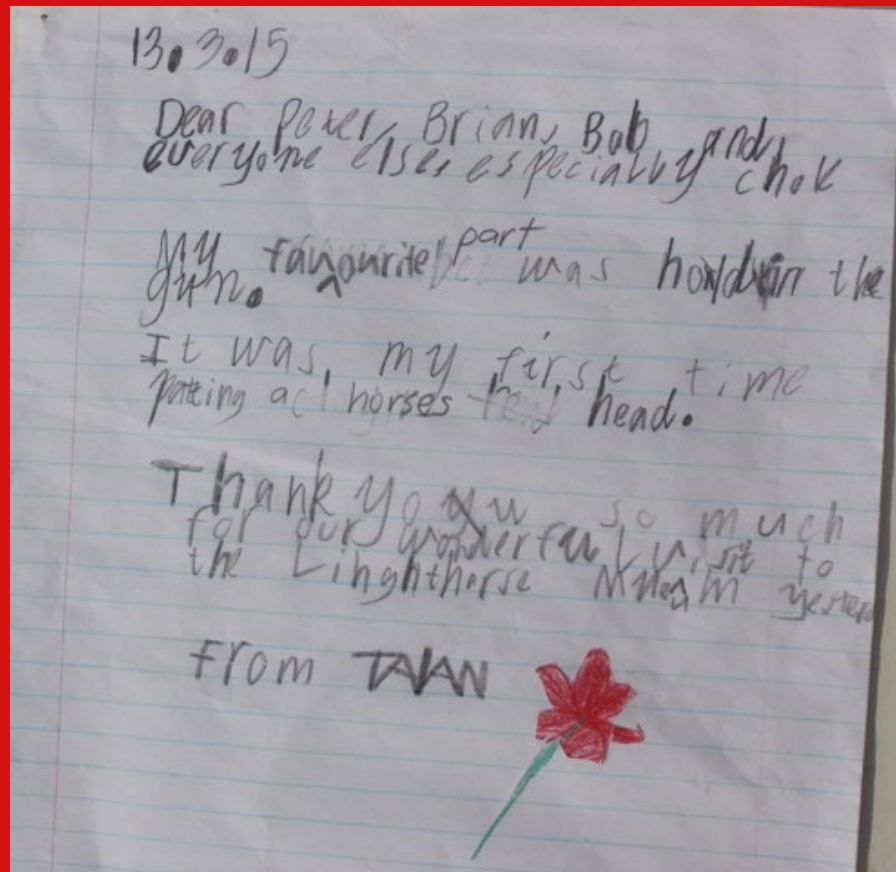 13.3.15
Dear Peter, Brian, Bob and
everyone else, especially chok
My favourite part was holdin the
gun.
It was my first time
patting a horses head.
Thank you so much
for our wonderful visit to
the Linghtherse
from TALAN